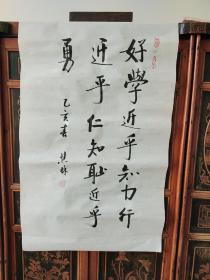 好學近乎知力行
近乎仁知恥近乎
勇
乙亥書